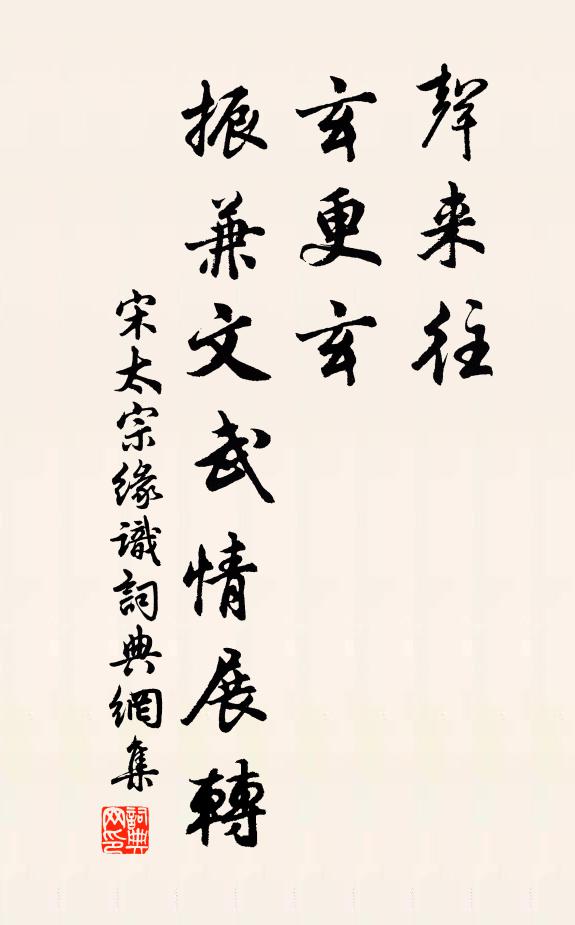 聲来往
玄更玄
振兼文武情展轉
宋太宗緣識詞典網集
詞典网印